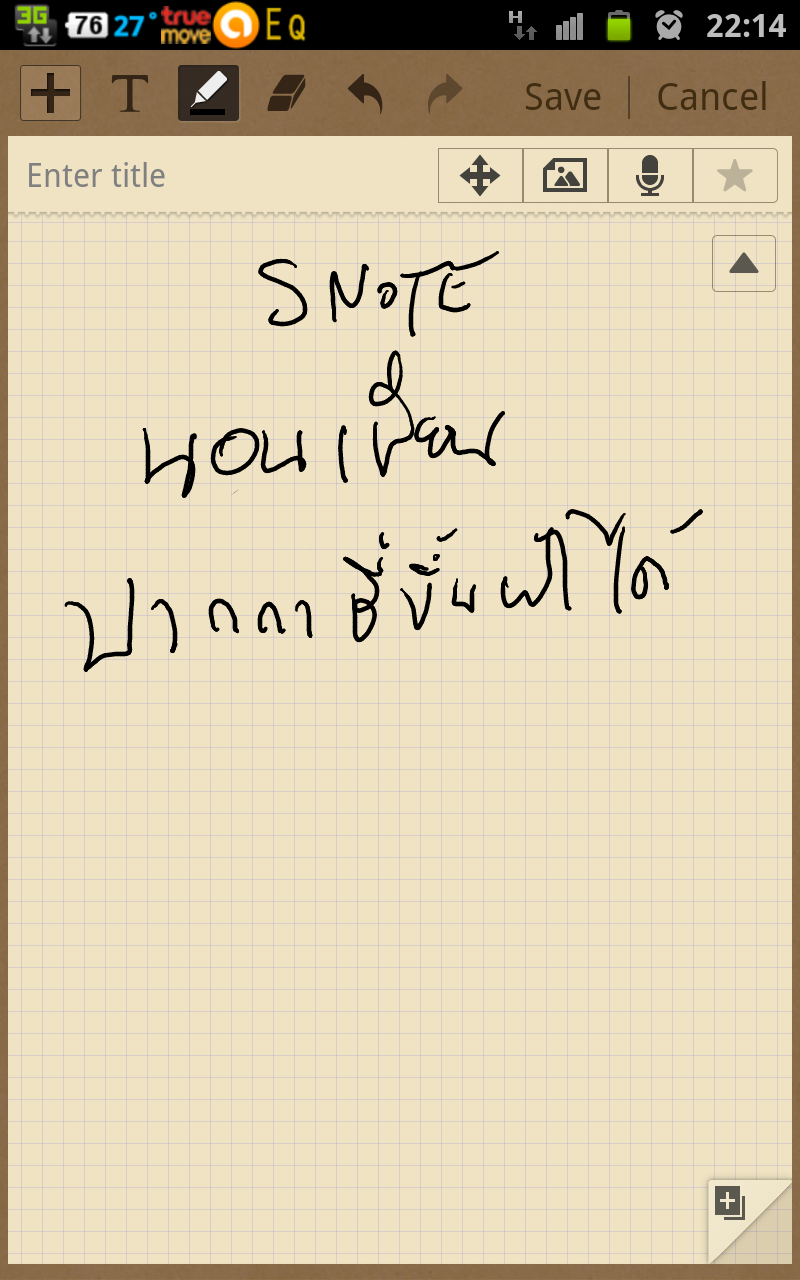 3G 76 27° true move a E Q H 22:14
T Save Cancel
Enter title
S NOTE
นอนเขียน
ปากกา